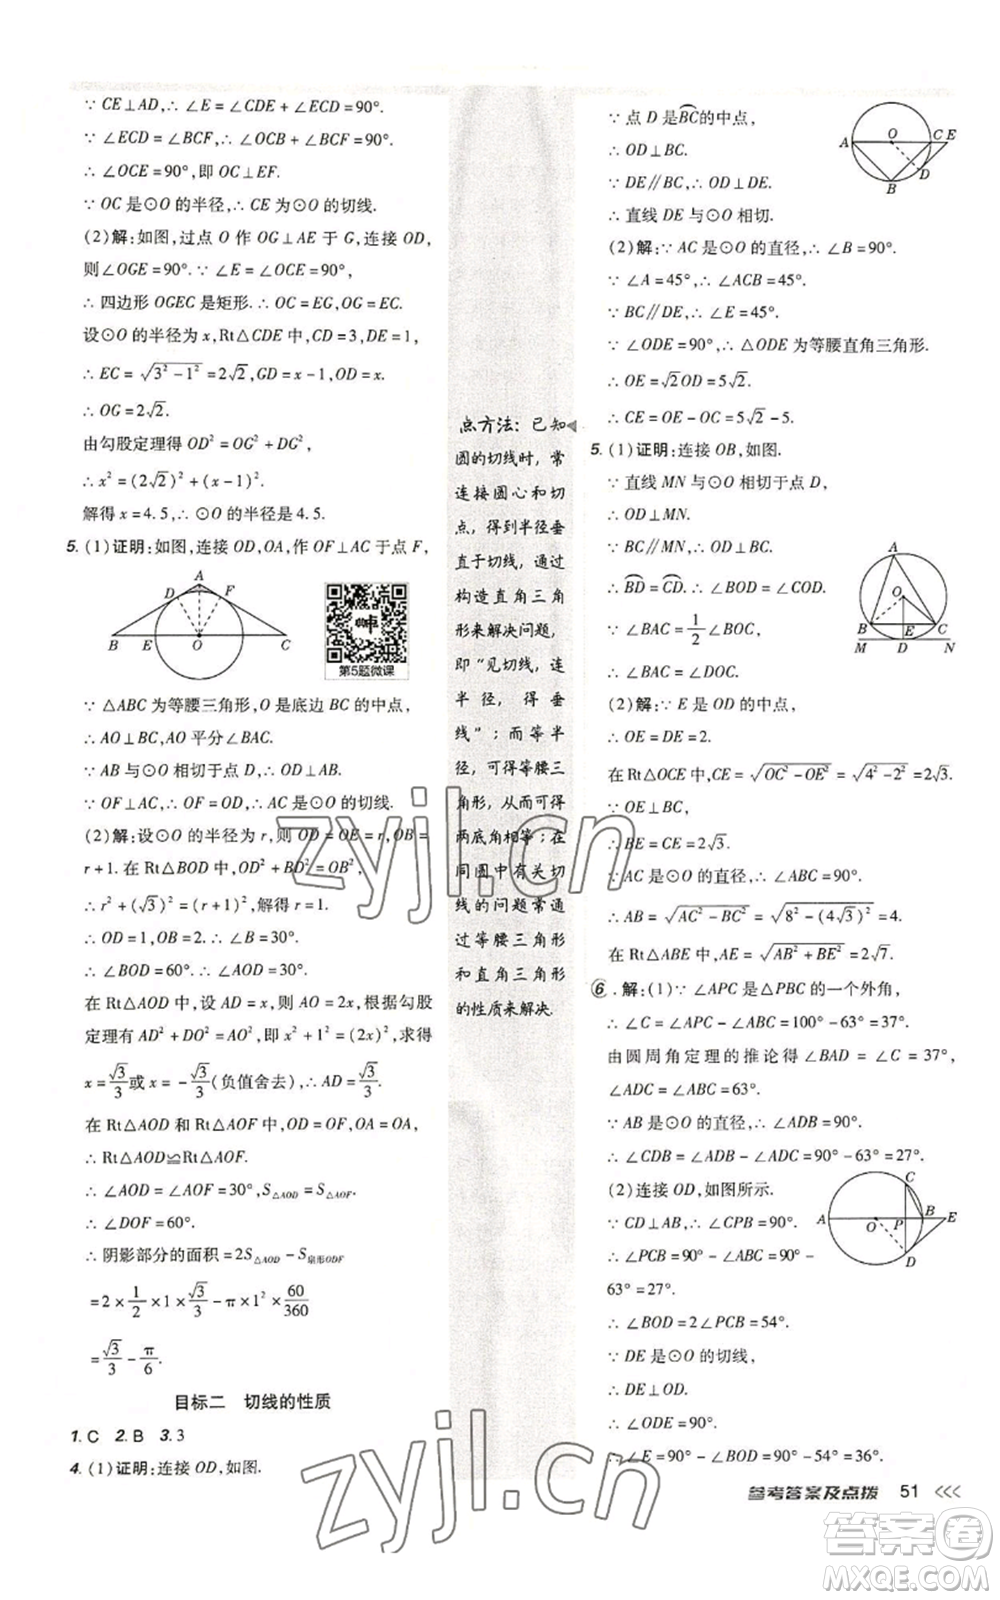 ∵ CE⊥AD,∴ ∠E = ∠CDE + ∠ECD = 90°.
∵ ∠ECD = ∠BCF,∴ ∠OCB + ∠BCF = 90°.
∴ ∠OCE = 90°,即 OC⊥EF.
∵ OC 是⊙O 的半径,∴ CE 为⊙O 的切线.
(2)解:如图,过点 O 作 OG⊥AE 于 G,连接 OD,
则∠OGE = 90°.
∴ 四边形 OGEC 是矩形.∴ OC = EG,OG = EC.
设⊙O 的半径为 x,Rt△CDE 中,CD = 3,DE = 1,
∴ EC = √(3² − 1²) = 2√2,GD = x − 1,OD = x.
∴ OG = 2√2.
由勾股定理得 OD² = OG² + DG²,
∴ x² = (2√2)² + (x − 1)².
解得 x = 4.5,∴ ⊙O 的半径是 4.5.
5. (1)证明:如图,连接 OD,OA,作 OF⊥AC 于点 F,
A
D
F
B
E
O
C
第5题微课
∵ △ABC 为等腰三角形,O 是底边 BC 的中点,
∴ AO⊥BC,AO 平分∠BAC.
∵ AB 与⊙O 相切于点 D,∴ OD⊥AB.
∵ OF⊥AC,∴ OF = OD,∴ AC 是⊙O 的切线.
(2)解:设⊙O 的半径为 r,则 OD = OE = r,OB =
r + 1. 在 Rt△BOD 中,OD² + BD² = OB²,
∴ r² + (√3)² = (r + 1)²,解得 r = 1.
∴ OD = 1,OB = 2.∴ ∠B = 30°.
∴ ∠BOD = 60°.∴ ∠AOD = 30°.
在 Rt△AOD 中,设 AD = x,则 AO = 2x,根据勾股
定理有 AD² + OD² = AO²,即 x² + 1² = (2x)²,求得
x = √3/3 或 x = − √3/3 (负值舍去),∴ AD = √3/3.
在 Rt△AOD 和 Rt△AOF 中,OD = OF,AO = AO,
∴ Rt△AOD≌Rt△AOF.
∴ ∠AOD = ∠AOF = 30°,S△AOD = S△AOF.
∴ ∠DOF = 60°.
∴ 阴影部分的面积 = 2S△AOD − S扇形ODF
= 2 × 1/2 × 1 × √3/3 − π × 1² × 60/360
= √3/3 − π/6.
目标二 切线的性质
1. C 2. B 3. 3
4. (1)证明:连接 OD,如图.
点方法: 已知
圆的切线时, 常
连接圆心和切
点, 得到半径垂
直于切线, 通过
构造直角三角
形来解决问题,
即“见切线, 连
半径, 得垂
线”; 而等半
径, 可得等腰三
角形, 从而可得
两底角相等; 在
同圆中有关切
线的问题常通
过等腰三角形
和直角三角形
的性质来解决.
∵ 点 D 是B͡C的中点,
∴ OD⊥BC.
∵ DE∥BC,∴ OD⊥DE.
∴ 直线 DE 与⊙O 相切.
A
O
C E
D
B
(2)解:∵ AC 是⊙O 的直径,∴ ∠B = 90°.
∵ ∠A = 45°,∴ ∠ACB = 45°.
∵ BC∥DE,∴ ∠E = 45°.
∵ ∠ODE = 90°,∴ △ODE 为等腰直角三角形.
∴ OE = √2OD = 5√2.
∴ CE = OE − OC = 5√2 − 5.
5. (1)证明:连接 OB,如图.
∵ 直线 MN 与⊙O 相切于点 D,
∴ OD⊥MN.
∵ BC∥MN,∴ OD⊥BC.
∴ B͡D = C͡D.∴ ∠BOD = ∠COD.
∵ ∠BAC = 1/2 ∠BOC,
∴ ∠BAC = ∠DOC.
A
O
B
E
C
M
D
N
(2)解:∵ E 是 OD 的中点,
∴ OE = DE = 2.
在 Rt△OCE 中,CE = √(OC² − OE²) = √(4² − 2²) = 2√3.
∵ OE⊥BC,
∴ BE = CE = 2√3.
∵ AC 是⊙O 的直径,∴ ∠ABC = 90°.
∴ AB = √(AC² − BC²) = √(8² − (4√3)²) = 4.
在 Rt△ABE 中,AE = √(AB² + BE²) = 2√7.
6. 解:(1)∵ ∠APC 是△PBC 的一个外角,
∴ ∠C = ∠APC − ∠ABC = 100° − 63° = 37°.
由圆周角定理的推论得∠BAD = ∠C = 37°,
∠ADC = ∠ABC = 63°.
∵ AB 是⊙O 的直径,∴ ∠ADB = 90°.
∴ ∠CDB = ∠ADB − ∠ADC = 90° − 63° = 27°.
(2)连接 OD,如图所示.
∵ CD⊥AB,∴ ∠CPB = 90°.
∴ ∠PCB = 90° − ∠ABC = 90° −
63° = 27°.
C
A
O
P
B
E
D
∴ ∠BOD = 2∠PCB = 54°.
∵ DE 是⊙O 的切线,
∴ DE⊥OD.
∴ ∠ODE = 90°.
∴ ∠E = 90° − ∠BOD = 90° − 54° = 36°.
参考答案及点拨 51 <<<
zyjl.cn
zyjl.cn
答案卷
MXQE.COM